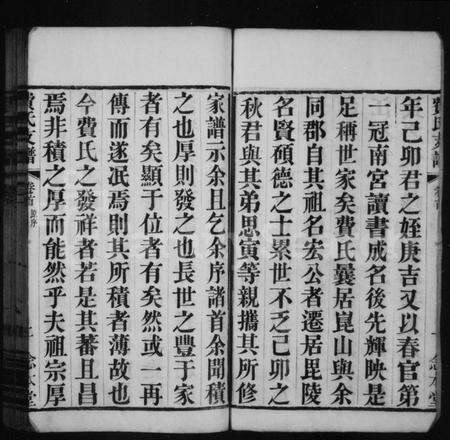 年己卯君之姪庚吉又以春官第
一冠南宮讀書成名後先輝映是
足稱世家矣費氏曩居崑山與余
同郡自其祖名宏公者遷居毘陵
名賢碩德之士累世不乏己卯之
秋君與其弟思寅等親攜其所修
家譜示余且乞余序諸首余聞積
之也厚則發之也長世之豐于家
者有矣顯于位者有矣然或一再
傳而遂泯焉則其所積者薄故也
今費氏之發祥者若是其蕃且昌
焉非積之厚而能然乎夫祖宗厚
費氏支譜 卷首